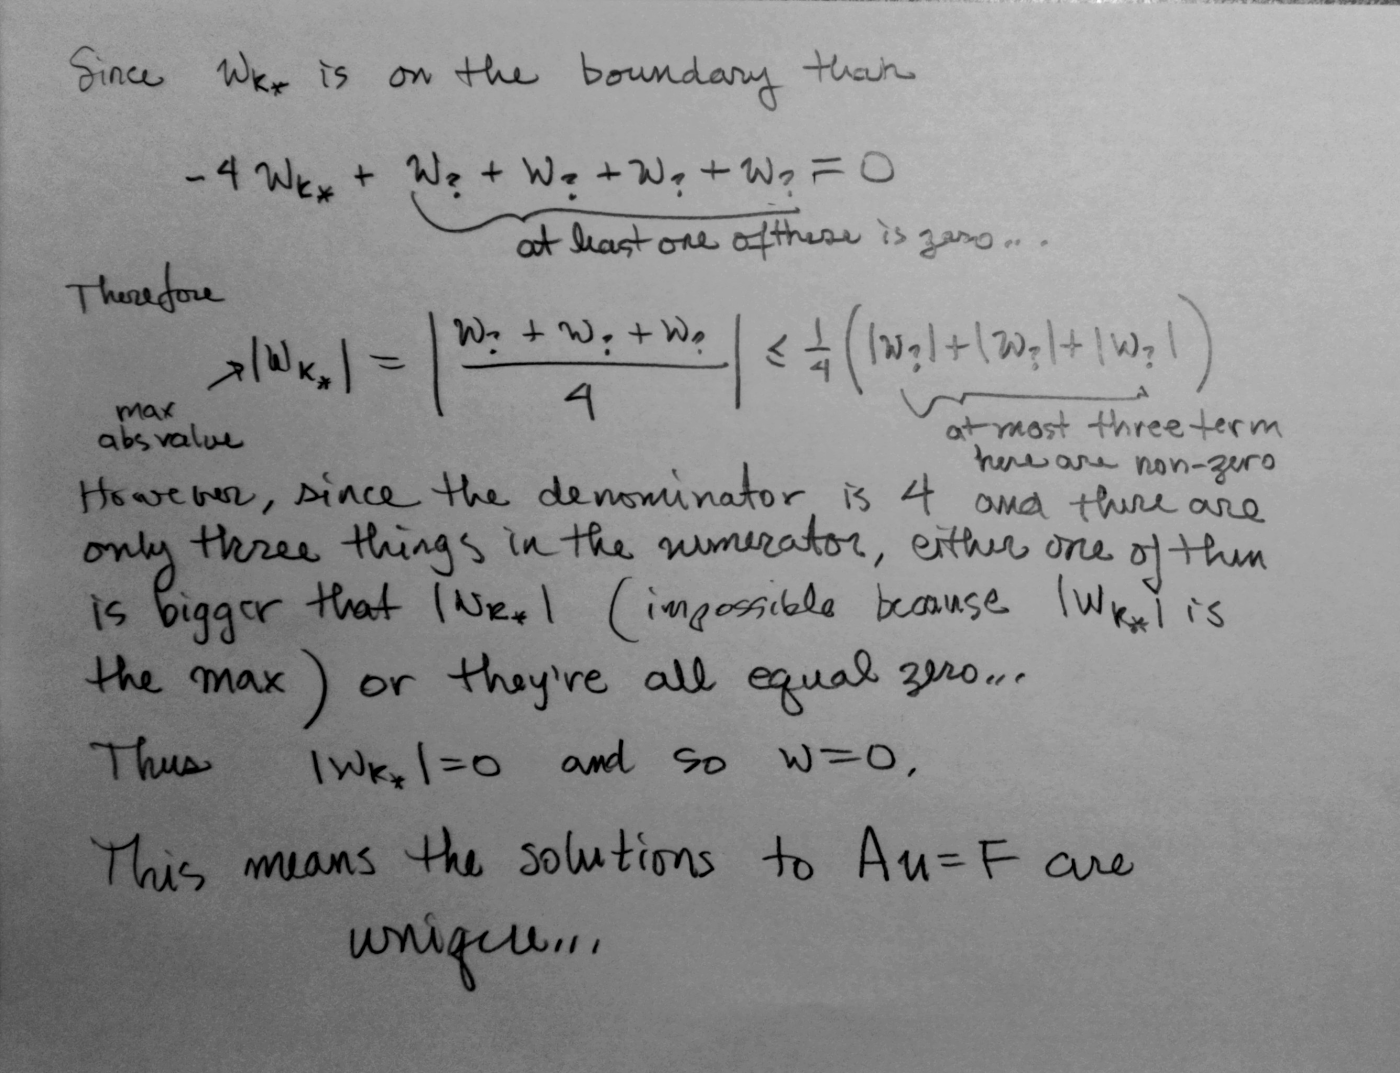 Since W_{K*} is on the boundary than
-4 W_{K*} + W_? + W_? + W_? + W_? = 0
at least one of these is zero...
Therefore
|W_{K*}| = | (W_? + W_? + W_?) / 4 | ≤ 1/4 ( |W_?| + |W_?| + |W_?| )
max
abs value
at most three term
here are non-zero
However, since the denominator is 4 and there are
only three things in the numerator, either one of them
is bigger that |W_{K*}| (impossible because |W_{K*}| is
the max) or they're all equal zero...
Thus |W_{K*}| = 0 and so W = 0.
This means the solutions to Au = F are
unique...